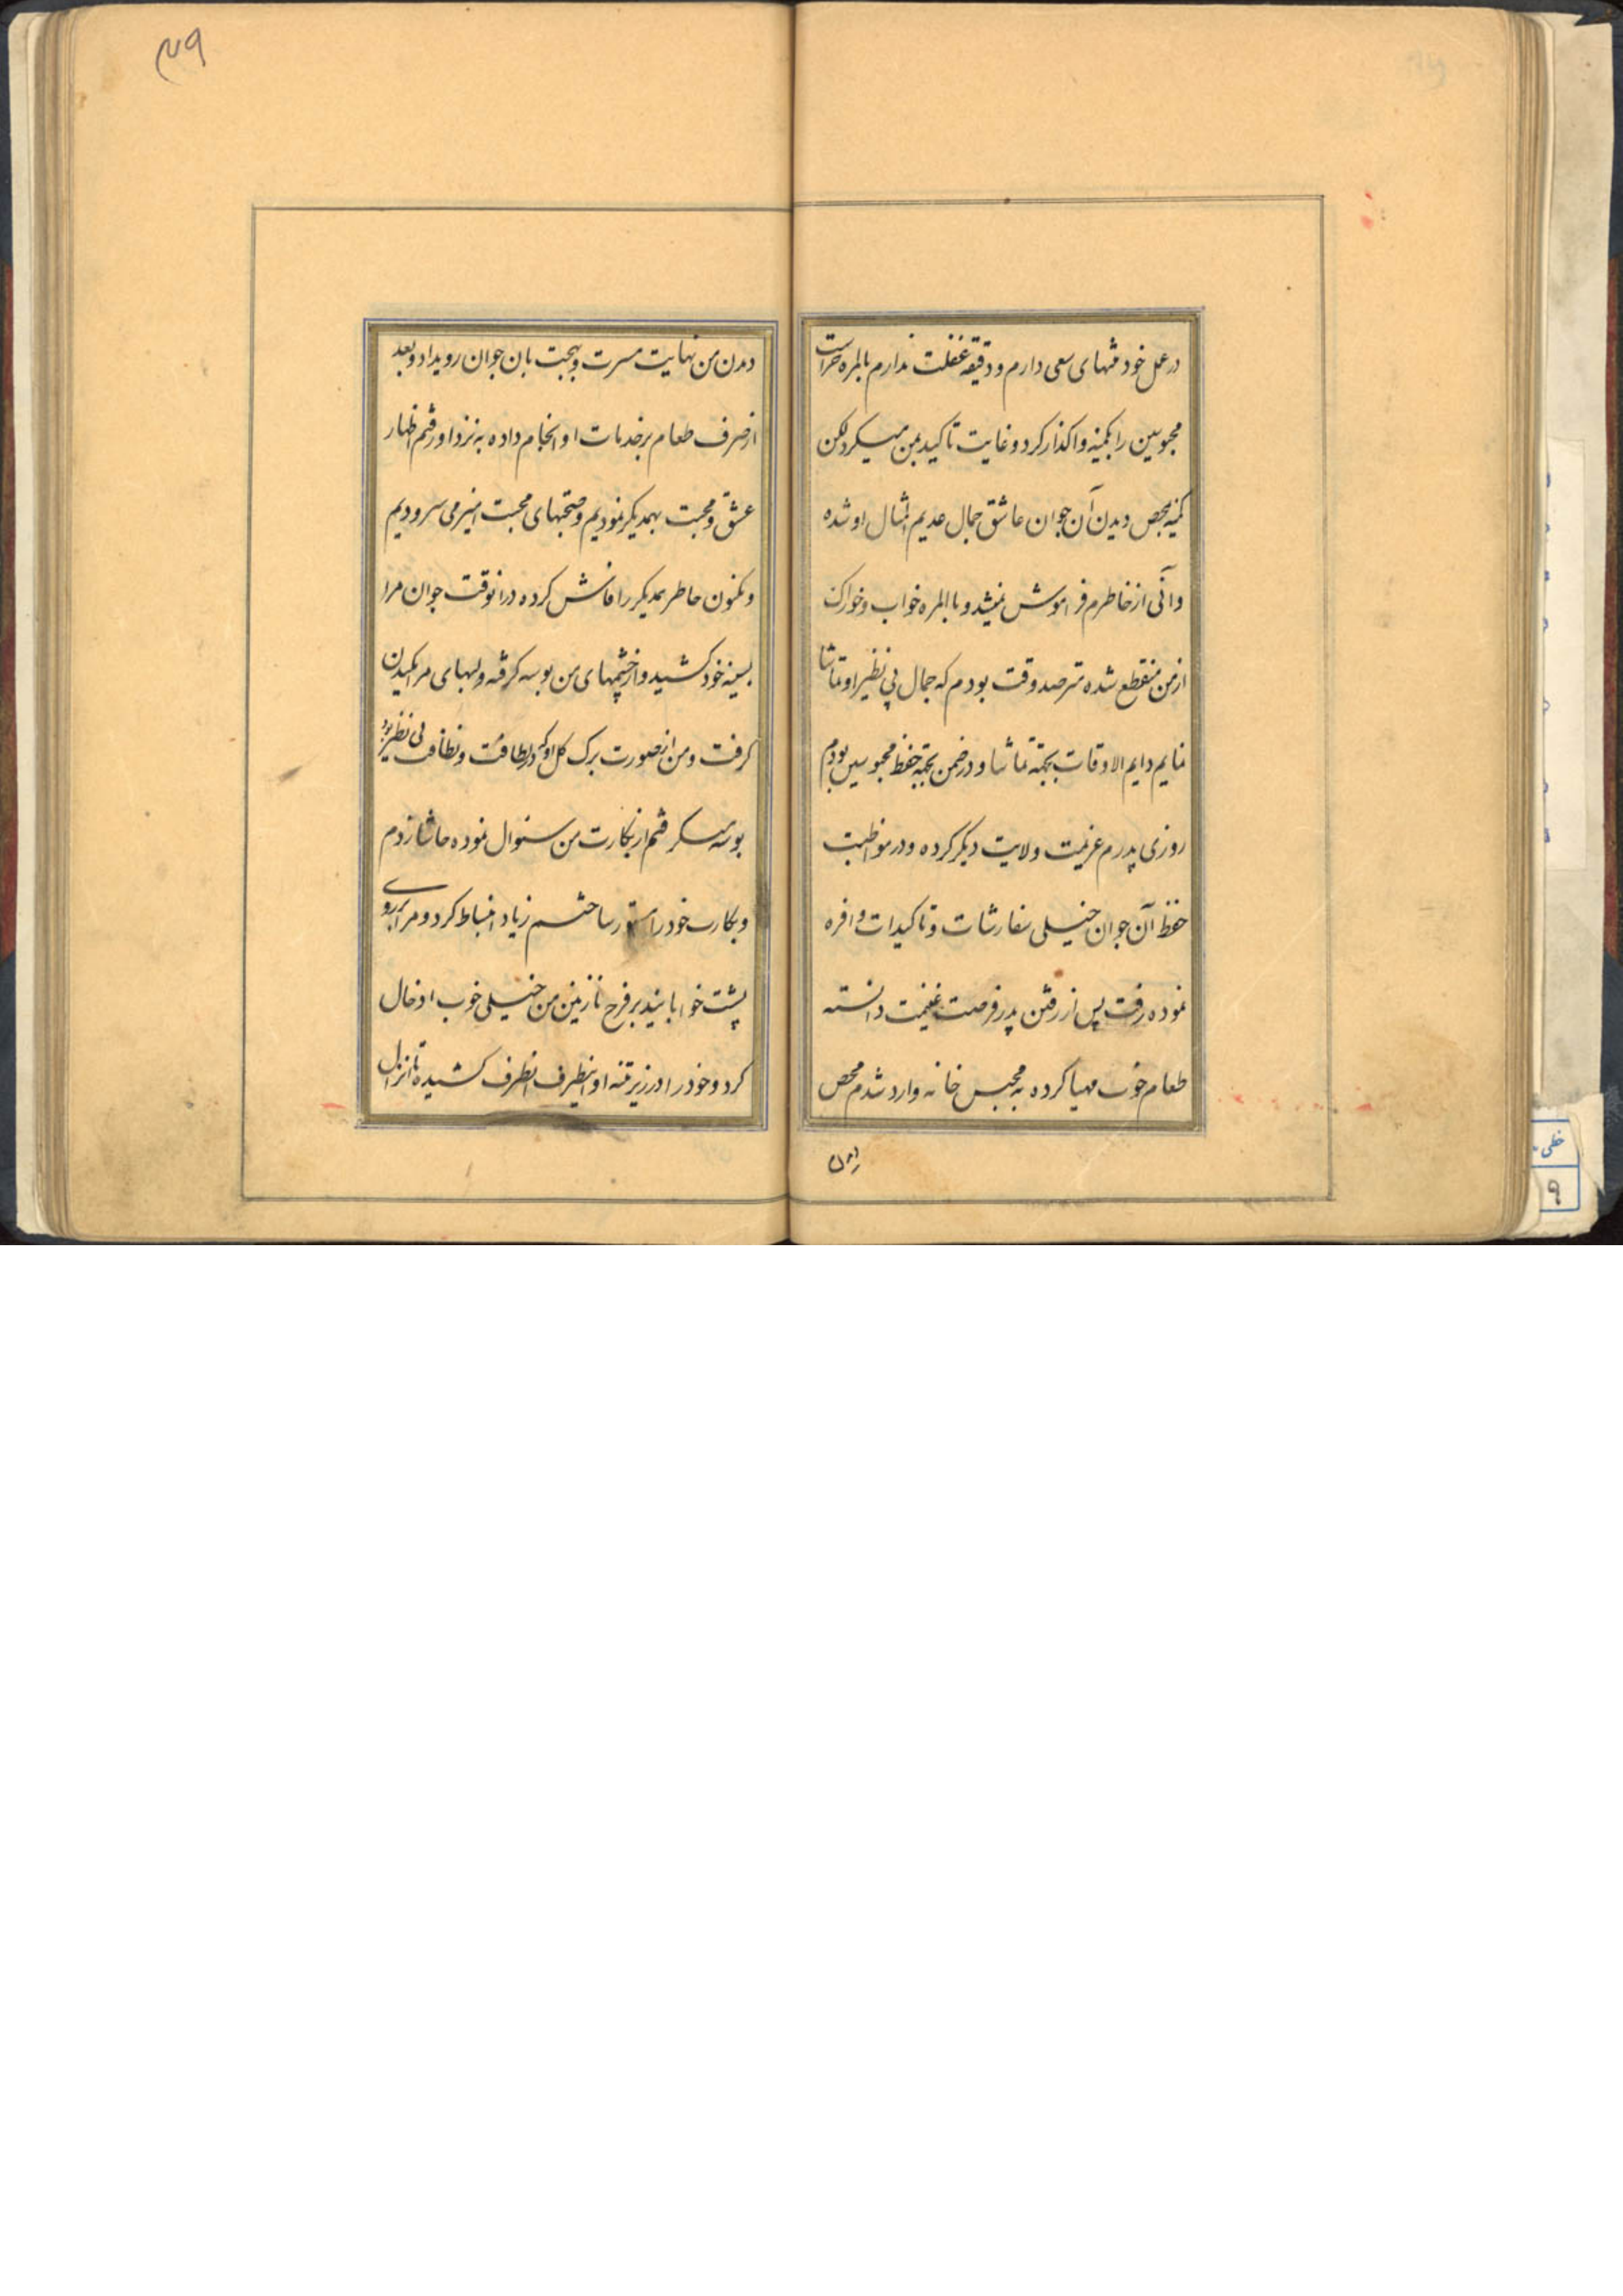 در عمل خود منتهای سعی دارم و دقیقه غفلت ندارم بالمره حراست
محبوسین را بکمینه واکذار کرد و غایت تاکید بمن میکرد لکن
کمینه بمحض دیدن آن جوان عاشق جمال عدیم المثال او شده
وآنی از خاطرم فراموش نمیشد و باالمره خواب و خوراک
از من منقطع شده مترصد وقت بودم که جمال بی نظیر او تماشا
نمایم دایم الاوقات بجهتة تماشا و در ضمن بجهتة حفظ محبوسین بودم
روزی پدرم عزیمت ولایت دیکر کرده و در مواظبت
حفظ آن جوان خیلی سفارشات و تاکیدات وافره
نموده رفت پس از رفتن پدر فرصت غنیمت دانسته
طعام خوب مهیا کرده به محبس خانه وارد شدم محض
دیدن
۴۹
دیدن من نهایت مسرت و بهجت بان جوان رویداد و بعد
از صرف طعام بر خدمات او انجام داده به نزد او رفتم اظهار
عشق و محبت بهمدیکر نمودیم و صحبتهای محبت امیز می سرودیم
ومکنون خاطر همدیکر را فاش کرده درانوقت جوان مرا
بسینه خود کشید و از چشمهای من بوسه کرفته و لبهای مرا مکیدن
کرفت و من از صورت برک کل او که در لطافت و نظافت بی نظیر بود
بوسه میکرفتم از بکارت من سئوال نموده حاشا زدم
وبکارت خود را مستور ساختم زیاد انبساط کرد و مرا بر روی
پشت خوابانید بر فرج نازنین من خیلی خوب ادخال
کرد و خود را در زیر تنه او اینطرف انطرف کشیده تا انزال
خطی
۹